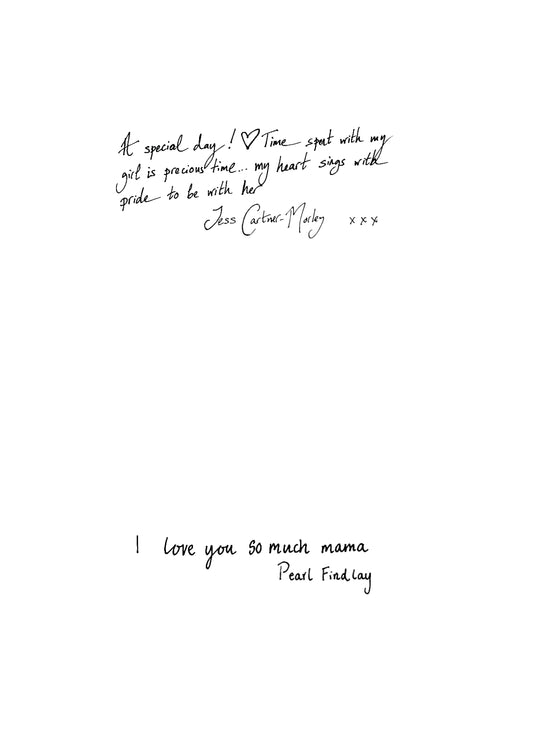 A special day! ♡ Time spent with my
girl is precious time... my heart sings with
pride to be with her
Jess Cartner-Morley x x x
I love you so much mama
Pearl Findlay